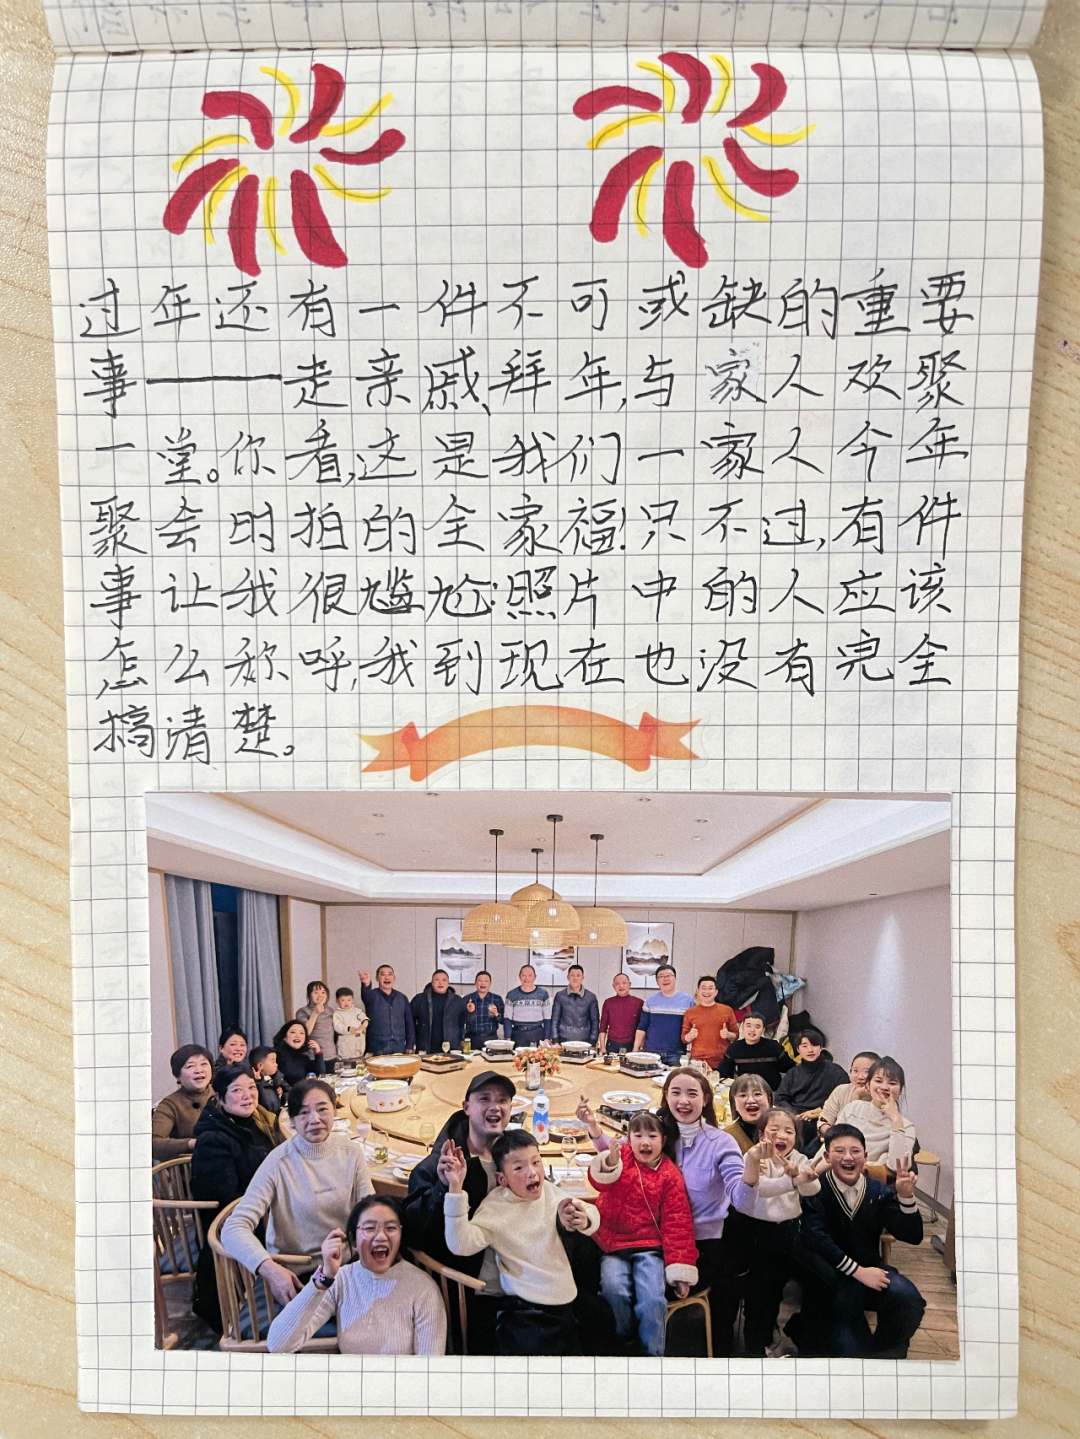 过年还有一件不可或缺的重要
事——走亲戚、拜年,与家人欢聚
一堂。你看,这是我们一家人今年
聚会时拍的全家福!只不过,有件
事让我很尴尬:照片中的人应该
怎么称呼,我到现在也没有完全
搞清楚。